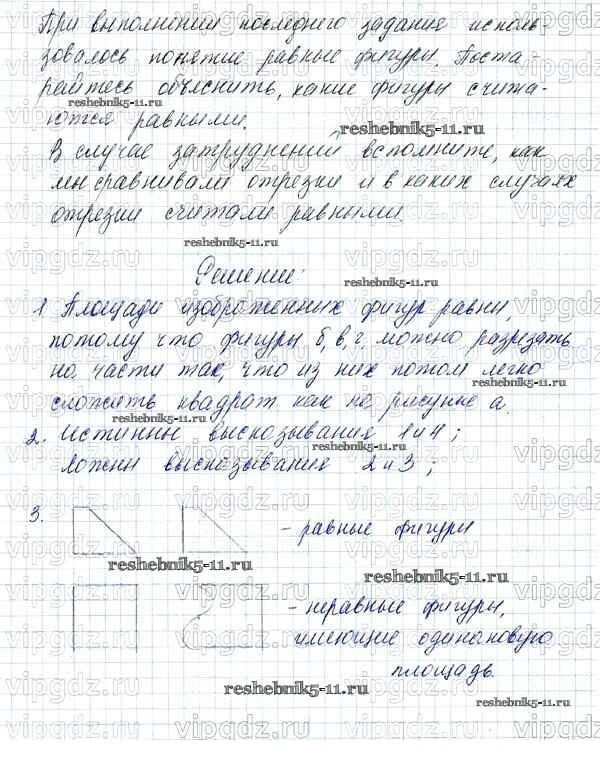 При выполнении последнего задания исполь-
зовалось понятие равные фигуры. Поста-
райтесь объяснить, какие фигуры счита-
reshebnik5-11.ru
ются равными.
reshebnik5-11.ru
В случае затруднений вспомните, как
мы сравнивали отрезки и в каких случаях
отрезки считали равными.
reshebnik5-11.ru
Решение:
reshebnik5-11.ru
1 Площади изображенных фигур равны,
потому что фигуры б, в, г можно разрезать
на части так, что из них потом легко
reshebnik5-11.ru
сложить квадрат как на рисунке а.
reshebnik5-11.ru
2. Истинны высказывания 1 и 4;
reshebnik5-11.ru
Ложны высказывания 2 и 3;
3.
- равные фигуры
reshebnik5-11.ru
reshebnik5-11.ru
- неравные фигуры,
имеющие одинаковую
площадь.
reshebnik5-11.ru
vipgdz.ru